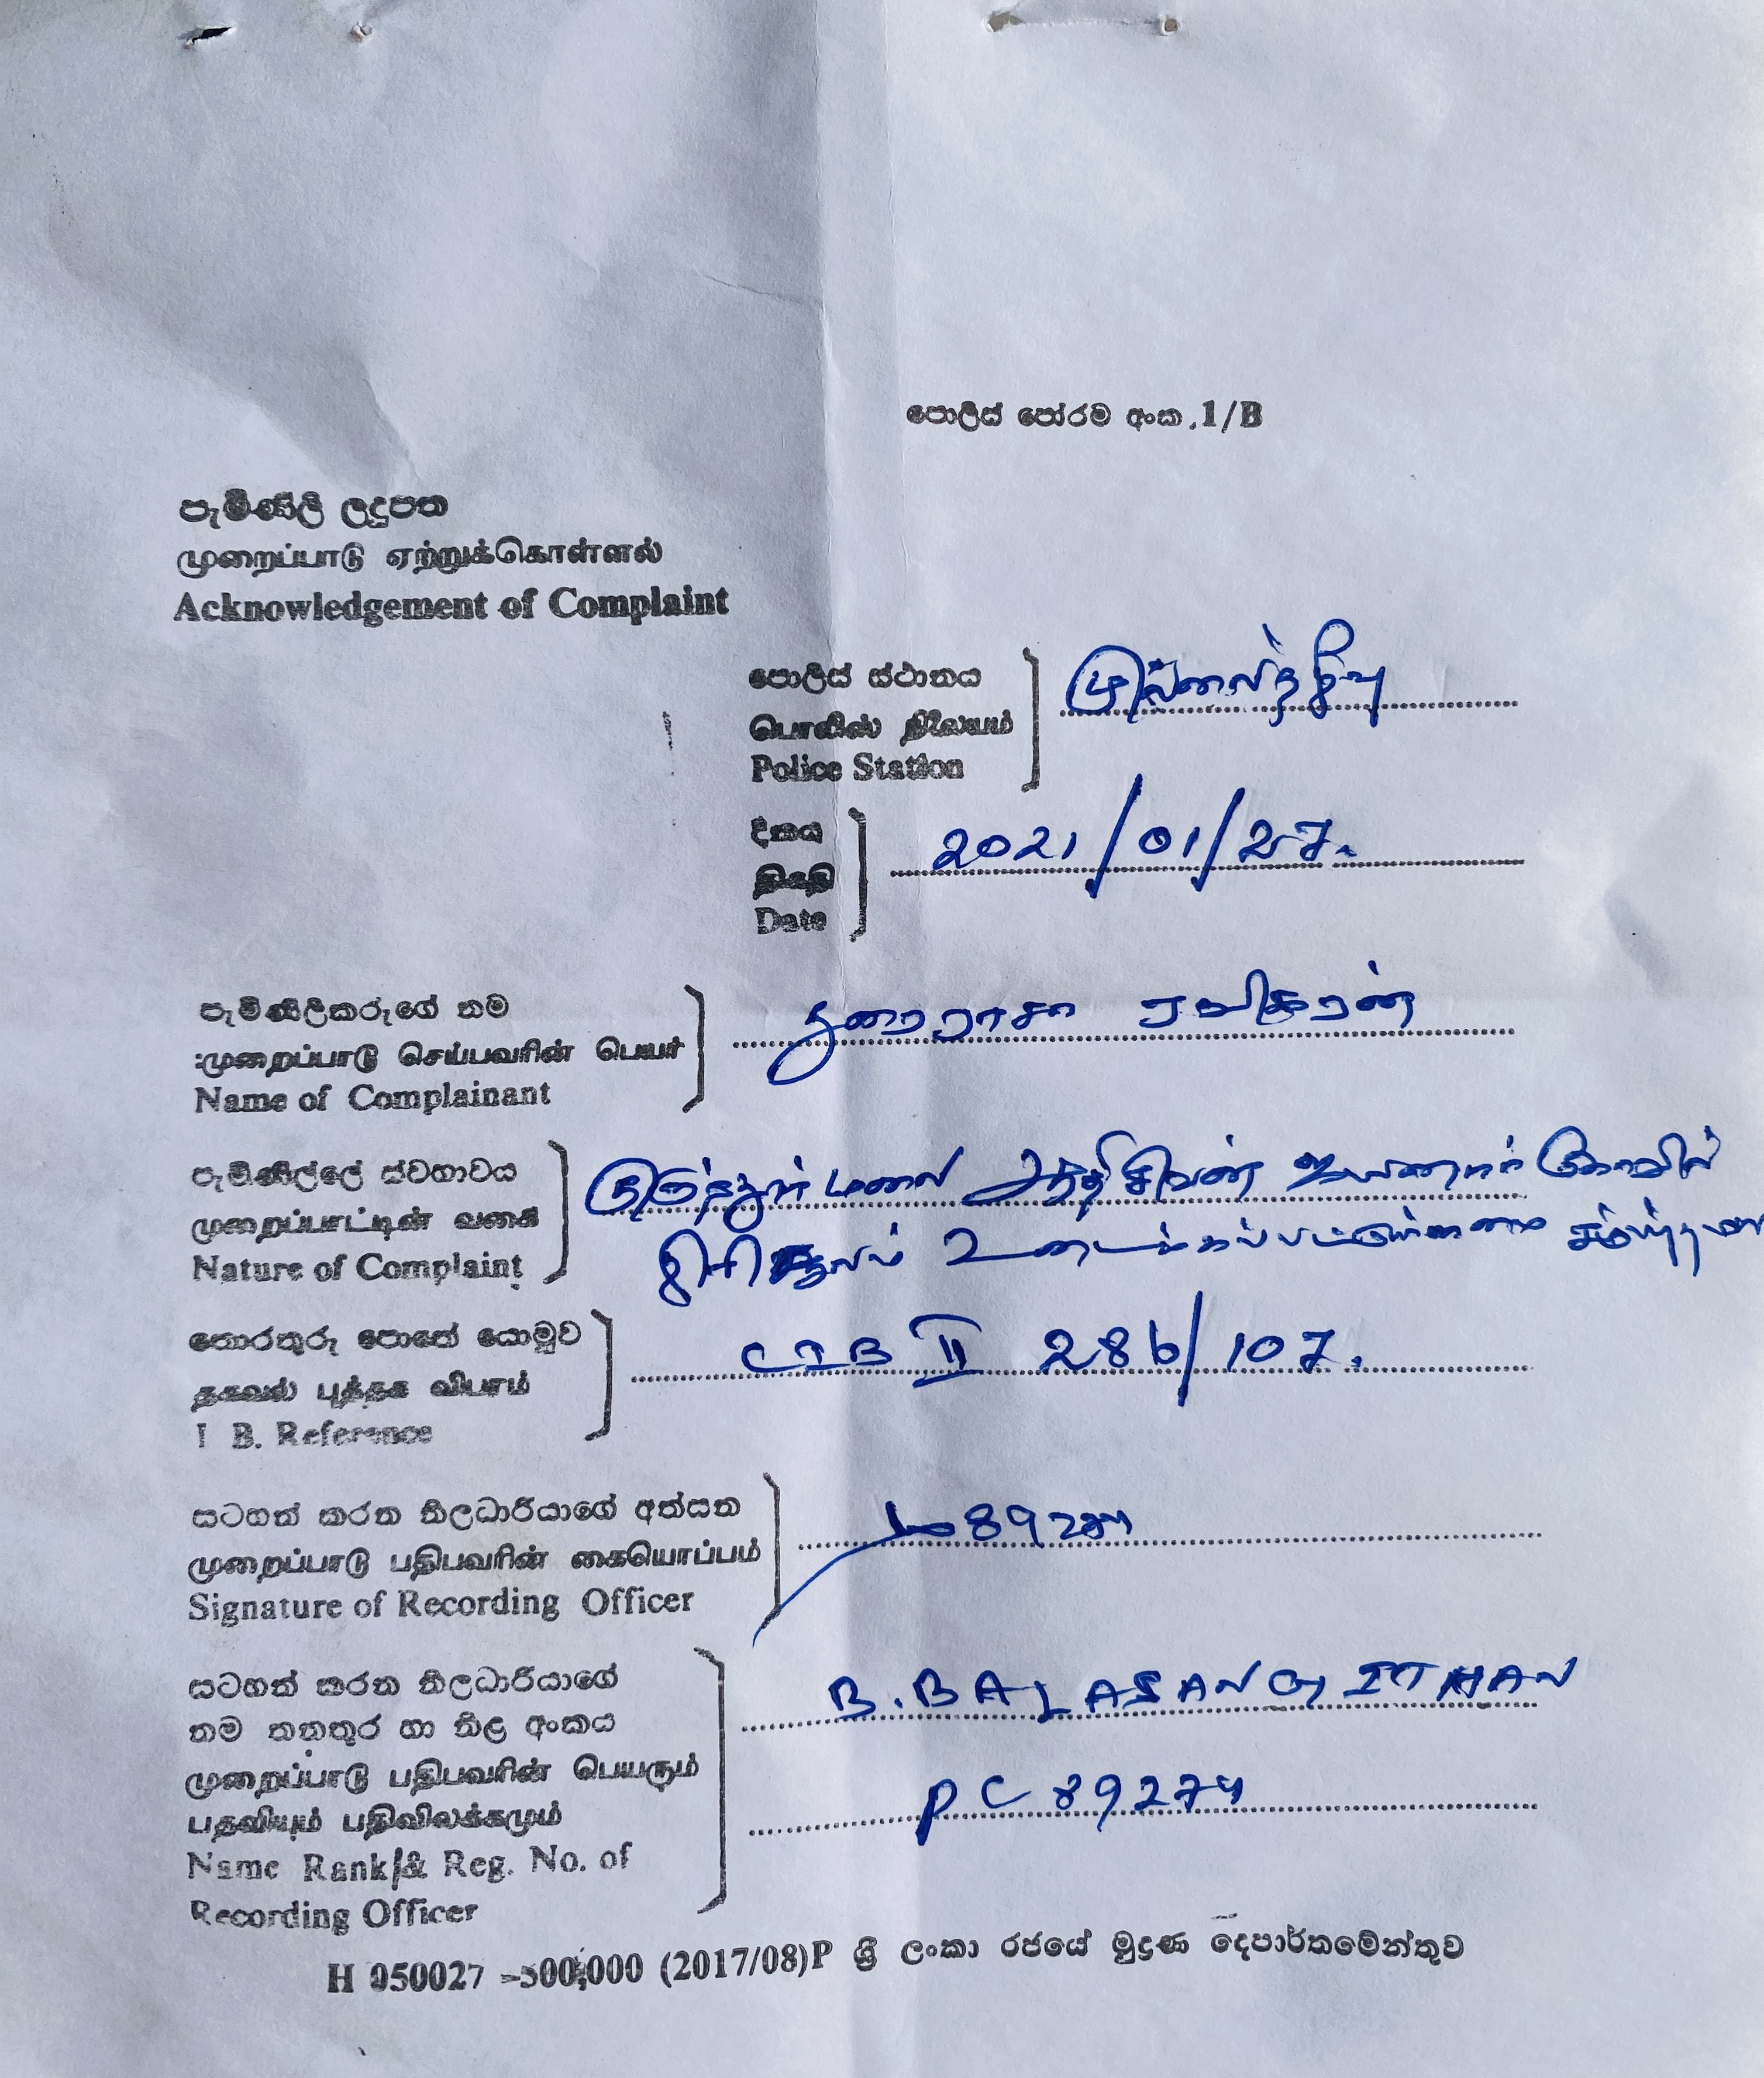 පොලිස් පෝරම අංක .1/B
පැමිණිලි ලදුපත
முறைப்பாடு ஏற்றுக்கொள்ளல்
Acknowledgement of Complaint
පොලිස් ස්ථානය
பொலிஸ் நிலையம்
Police Station
முல்லைத்தீவு
දිනය
திகதி
Date
2021/01/27.
පැමිණිලිකරුගේ නම
முறைப்பாடு செய்பவரின் பெயர்
Name of Complainant
துரைராசா ரவிகரன்
පැමිණිල්ලේ ස්වභාවය
முறைப்பாட்டின் வகை
Nature of Complaint
குருந்தூர் மலை ஆதிசிவன் ஐயனார் கோவில்
திரிசூலம் உடைக்கப்பட்டுள்ளமை
තොරතුරු පොතේ යොමුව
தகவல் புத்தக விபரம்
I B. Reference
CIB II 286/107.
සටහන් කරන නිලධාරියාගේ අත්සන
முறைப்பாடு பதிபவரின் கையொப்பம்
Signature of Recording Officer
89274
සටහන් කරන නිලධාරියාගේ
නම තනතුර හා නිළ අංකය
முறைப்பாடு பதிபவரின் பெயரும்
பதவியும் பதிவிலக்கமும்
Name Rank & Reg. No. of
Recording Officer
B. BALASANGITHAN
PC 89274
H 050027 -500,000 (2017/08)P ශ්‍රී ලංකා රජයේ මුද්‍රණ දෙපාර්තමේන්තුව